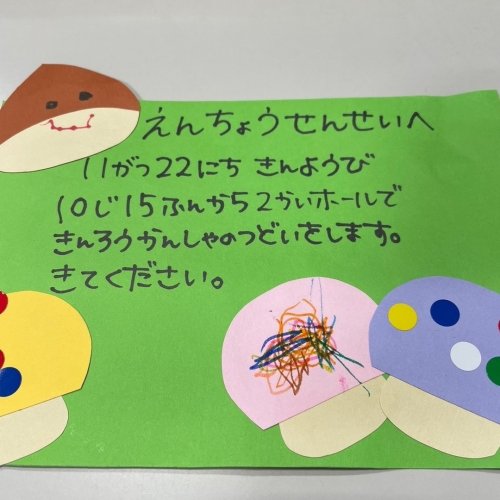 えんちょうせんせいへ
11がつ22にち きんようび
10じ15ふんから2かいホールで
きんろうかんしゃのつどいをします。
きてください。